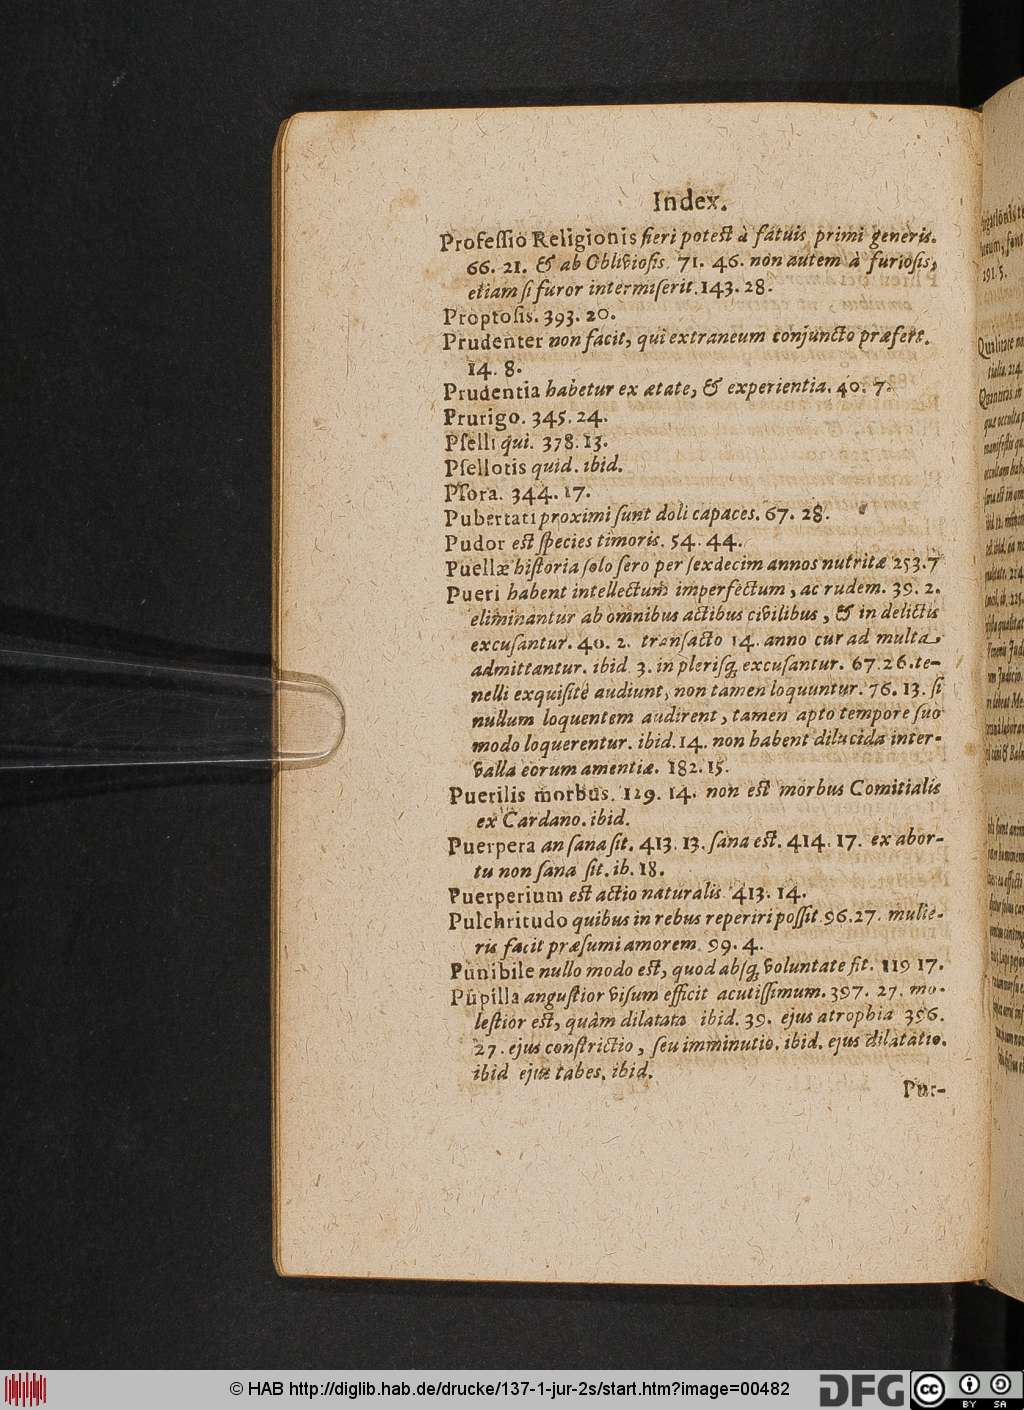 Index.
Professio Religionis fieri potest à fatuis primi generis.
66. 21. & ab Obliviosis. 71. 46. non autem à furiosis,
etiam si furor intermiserit. 143. 28.
Proptosis. 393. 20.
Prudenter non facit, qui extraneum conjuncto præfert.
14. 8.
Prudentia habetur ex ætate, & experientia. 40. 7.
Prurigo. 345. 24.
Pſelli qui. 378. 13.
Pſellotis quid. ibid.
Pſora. 344. 17.
Pubertati proximi ſunt doli capaces. 67. 28.
Pudor est ſpecies timoris. 54. 44.
Puellæ hiſtoria ſolo ſero per ſexdecim annos nutritæ 253. 7
Pueri habent intellectum imperfectum, ac rudem. 39. 2.
eliminantur ab omnibus actibus civilibus, & in delictis
excuſantur. 40. 2. tranſacto 14. anno cur ad multa
admittantur. ibid. 3. in pleriſq; excuſantur. 67. 26. te-
nelli exquiſitè audiunt, non tamen loquuntur. 76. 13. ſi
nullum loquentem audirent, tamen apto tempore ſuo
modo loquerentur. ibid. 14. non habent dilucida inter-
valla eorum amentiæ. 182. 15.
Puerilis morbus. 129. 14. non est morbus Comitialis
ex Cardano. ibid.
Puerpera an ſana ſit. 413. 13. ſana est. 414. 17. ex abor-
tu non ſana ſit. ib. 18.
Puerperium est actio naturalis 413. 14.
Pulchritudo quibus in rebus reperiri poſſit 96. 27. mulie-
ris facit præſumi amorem. 99. 4.
Punibile nullo modo est, quod abſq; voluntate fit. 119 17.
Pupilla anguſtior viſum efficit acutiſſimum. 397. 27. mo-
leſtior est, quàm dilatata ibid. 39. ejus atrophia 396.
27. ejus conſtrictio, ſeu imminutio. ibid. ejus dilatatio.
ibid ejus tabes. ibid.
Pur-
191. 5.
© HAB http://diglib.hab.de/drucke/137-1-jur-2s/start.htm?image=00482
DFG
cc
BY SA